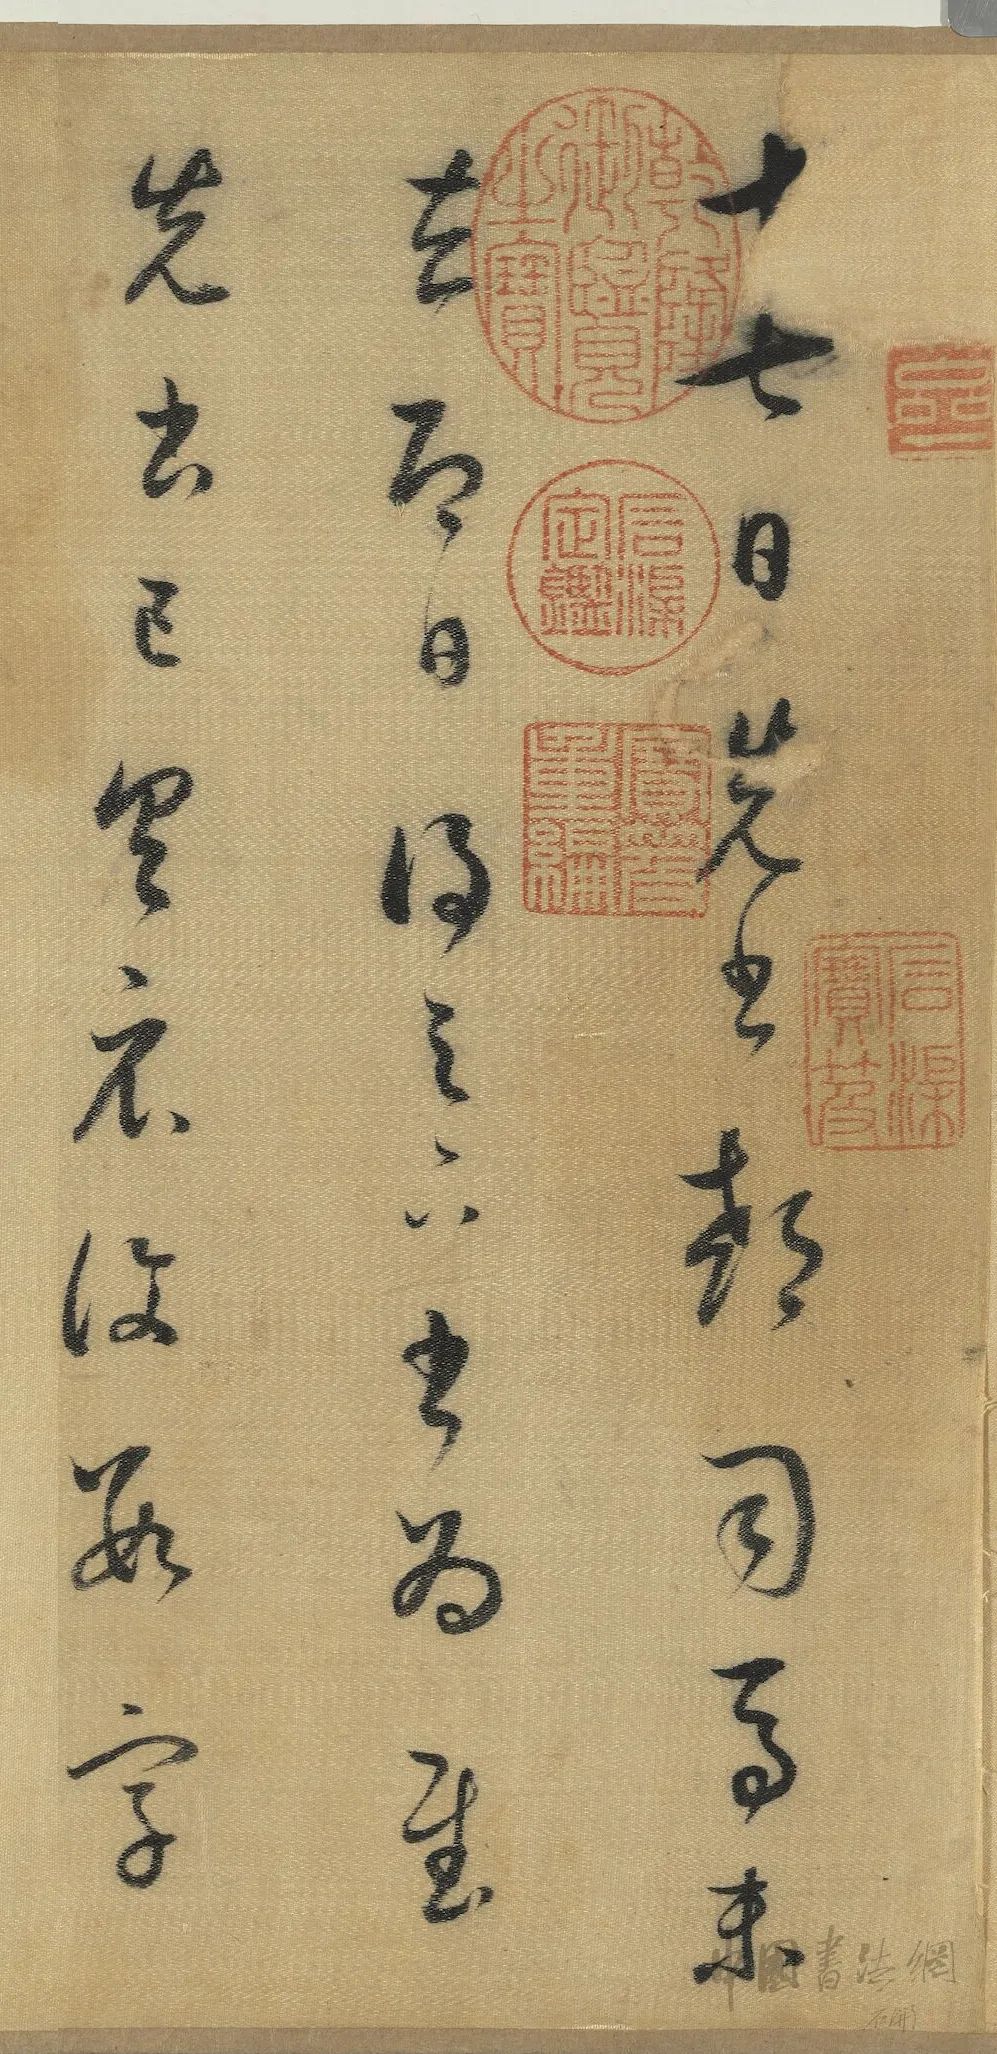 十七日先書郗司馬未
去即日得足下書為慰
先書已具示復數字
乾隆御覽之寶
石渠定鑑
寶笈重編
石渠寶笈
中国書法網